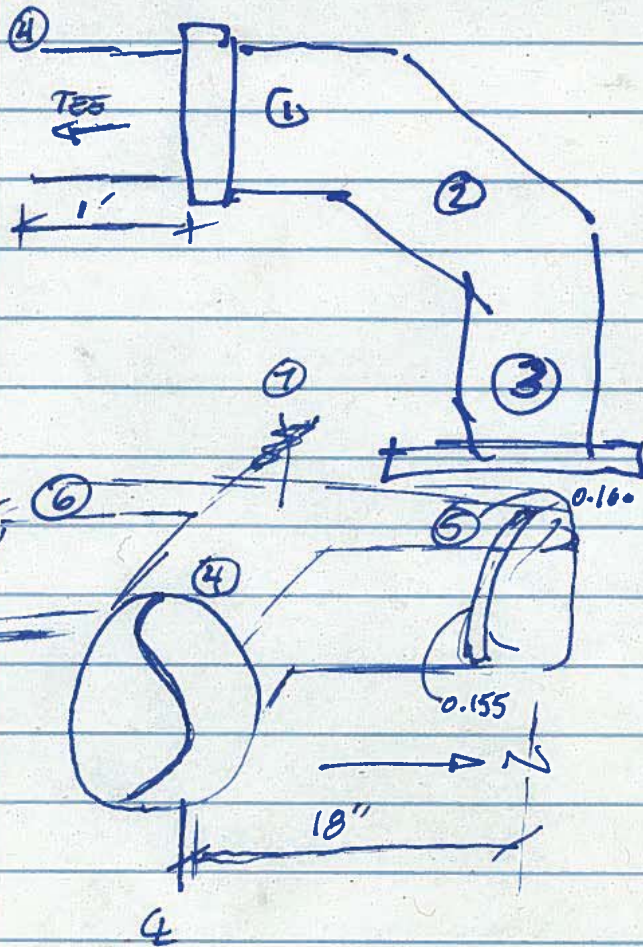 ④
TEE
①
1'
②
③
⑦
0.160
⑥
⑤
④
0.155
N
18"
℄